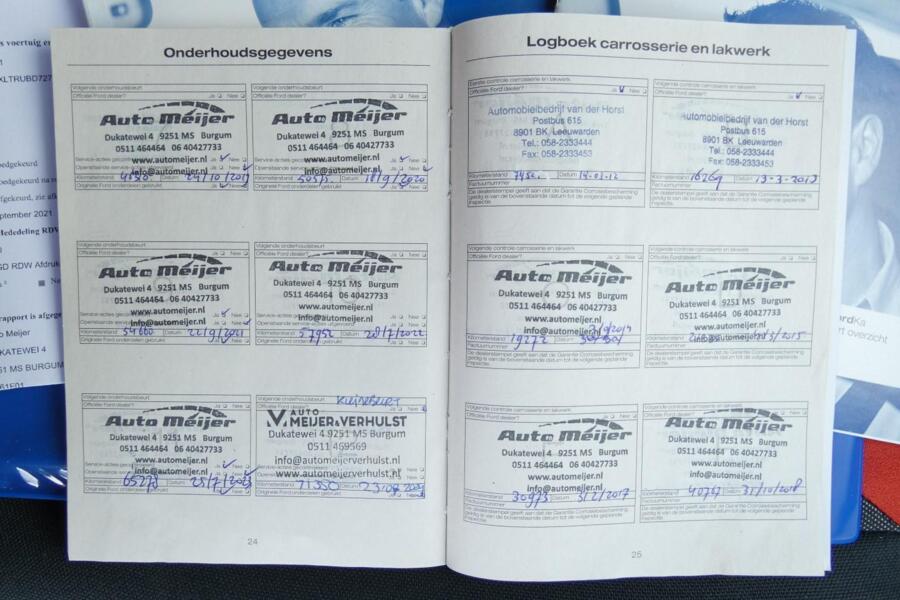 Onderhoudsgegevens
Volgende onderhoudsbeurt
Officiële Ford dealer? Ja Nee
Auto Meijer
Dukatewei 4 9251 MS Burgum
0511 464464 06 40427733
www.automeijer.nl
info@automeijer.nl
Kilometerstand Datum 24/10/2019
Originele Ford onderdelen gebruikt Ja Nee
Volgende onderhoudsbeurt
Officiële Ford dealer? Ja Nee
Auto Meijer
Dukatewei 4 9251 MS Burgum
0511 464464 06 40427733
www.automeijer.nl
info@automeijer.nl
Kilometerstand Datum 18/9/2020
Originele Ford onderdelen gebruikt Ja Nee
Volgende onderhoudsbeurt
Officiële Ford dealer? Ja Nee
Auto Meijer
Dukatewei 4 9251 MS Burgum
0511 464464 06 40427733
www.automeijer.nl
info@automeijer.nl
Kilometerstand 54600 Datum 22/9/2021
Originele Ford onderdelen gebruikt Ja Nee
Volgende onderhoudsbeurt
Officiële Ford dealer? Ja Nee
Auto Meijer
Dukatewei 4 9251 MS Burgum
0511 464464 06 40427733
www.automeijer.nl
info@automeijer.nl
Kilometerstand 57952 Datum 28/7/2022
Originele Ford onderdelen gebruikt Ja Nee
Volgende onderhoudsbeurt
Officiële Ford dealer? Ja Nee
Auto Meijer
Dukatewei 4 9251 MS Burgum
0511 464464 06 40427733
www.automeijer.nl
info@automeijer.nl
Kilometerstand Datum 25/7/2023
Originele Ford onderdelen gebruikt Ja Nee
Volgende onderhoudsbeurt
Officiële Ford dealer? Ja Nee
AUTO
MEIJER&VERHULST
Dukatewei 4 9251 MS Burgum
0511 469569
info@automeijerverhulst.nl
www.automeijerverhulst.nl
Kilometerstand 71350 Datum
Originele Ford onderdelen gebruikt Ja Nee
24
Logboek carrosserie en lakwerk
Eerste controle carrosserie en lakwerk
Officiële Ford dealer? Ja Nee
Automobielbedrijf van der Horst
Postbus 615
8901 BK Leeuwarden
Tel.: 058-2333444
Fax: 058-2333453
Kilometerstand Datum 14-03-12
Factuurnummer
De dealerstempel geeft aan dat de Garantie Corrosiebescherming
geldig is van de bovenstaande datum tot de volgende geplande
inspectie.
Volgende controle carrosserie en lakwerk
Officiële Ford dealer? Ja Nee
Automobielbedrijf van der Horst
Postbus 615
8901 BK Leeuwarden
Tel.: 058-2333444
Fax: 058-2333453
Kilometerstand Datum
Factuurnummer
De dealerstempel geeft aan dat de Garantie Corrosiebescherming
geldig is van de bovenstaande datum tot de volgende geplande
inspectie.
Volgende controle carrosserie en lakwerk
Officiële Ford dealer? Ja Nee
Auto Meijer
Dukatewei 4 9251 MS Burgum
0511 464464 06 40427733
www.automeijer.nl
info@automeijer.nl
Kilometerstand 19272 Datum
Factuurnummer
De dealerstempel geeft aan dat de Garantie Corrosiebescherming
geldig is van de bovenstaande datum tot de volgende geplande
inspectie.
Volgende controle carrosserie en lakwerk
Officiële Ford dealer? Ja Nee
Auto Meijer
Dukatewei 4 9251 MS Burgum
0511 464464 06 40427733
www.automeijer.nl
info@automeijer.nl
Factuurnummer
De dealerstempel geeft aan dat de Garantie Corrosiebescherming
geldig is van de bovenstaande datum tot de volgende geplande
inspectie.
Volgende controle carrosserie en lakwerk
Officiële Ford dealer? Ja Nee
Auto Meijer
Dukatewei 4 9251 MS Burgum
0511 464464 06 40427733
www.automeijer.nl
info@automeijer.nl
Kilometerstand 30973 Datum 3/2/2017
Factuurnummer
De dealerstempel geeft aan dat de Garantie Corrosiebescherming
geldig is van de bovenstaande datum tot de volgende geplande
inspectie.
Volgende controle carrosserie en lakwerk
Officiële Ford dealer? Ja Nee
Auto Meijer
Dukatewei 4 9251 MS Burgum
0511 464464 06 40427733
www.automeijer.nl
info@automeijer.nl
Kilometerstand Datum 31/10/2018
Factuurnummer
De dealerstempel geeft aan dat de Garantie Corrosiebescherming
geldig is van de bovenstaande datum tot de volgende geplande
inspectie.
25